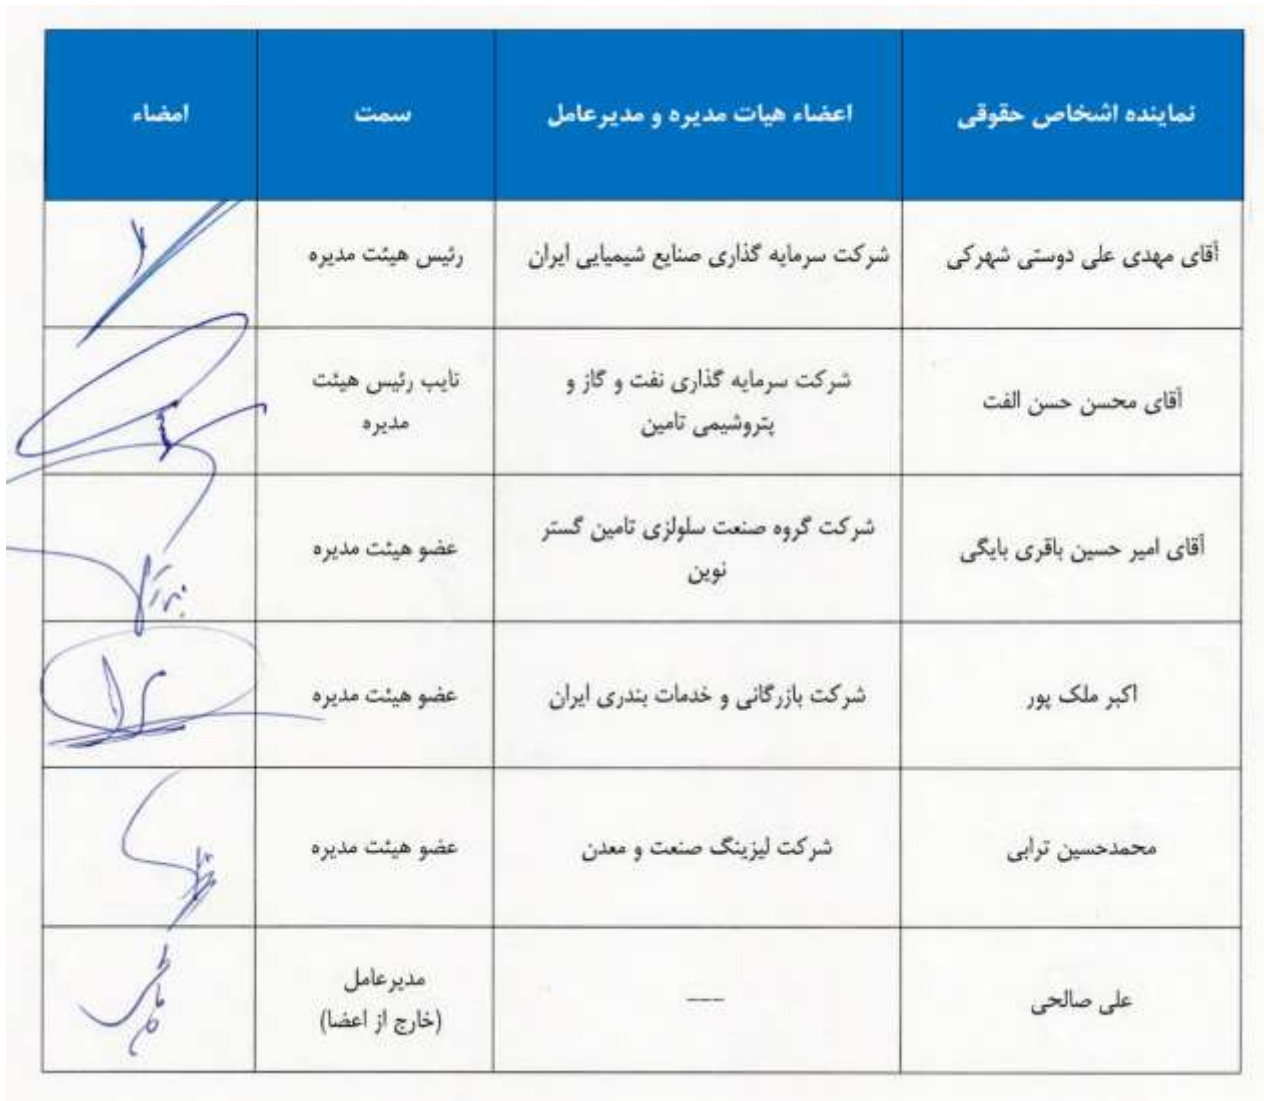 نماینده اشخاص حقوقی
اعضاء هیات مدیره و مدیرعامل
سمت
امضاء
آقای مهدی علی دوستی شهرکی
شرکت سرمایه گذاری صنایع شیمیایی ایران
رئیس هیئت مدیره
آقای محسن حسن الفت
شرکت سرمایه گذاری نفت و گاز و
پتروشیمی تامین
نایب رئیس هیئت
مدیره
آقای امیر حسین باقری بایگی
شرکت گروه صنعت سلولزی تامین گستر
نوین
عضو هیئت مدیره
اکبر ملک پور
شرکت بازرگانی و خدمات بندری ایران
عضو هیئت مدیره
محمدحسین ترابی
شرکت لیزینگ صنعت و معدن
عضو هیئت مدیره
علی صالحی
---
مدیرعامل
(خارج از اعضا)